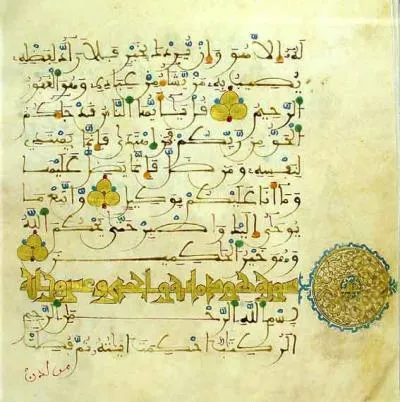 له إلا هو وإن يردك بخير فلا راد لفضله
يصيب به من يشاء من عباده وهو الغفور
الرحيم قل يأيها الناس قد جاءكم
الحق من ربكم فمن اهتدى فإنما يهتدي
لنفسه ومن ضل فإنما يضل عليها
وما أنا عليكم بوكيل واتبع ما
يوحى إليك واصبر حتى يحكم الله
وهو خير الحكمين
سورة هود مائة واحدى وعشرون اية
بسم الله الرحمن الرحيم
الر كتب أحكمت ايته ثم فصلت
من لدن